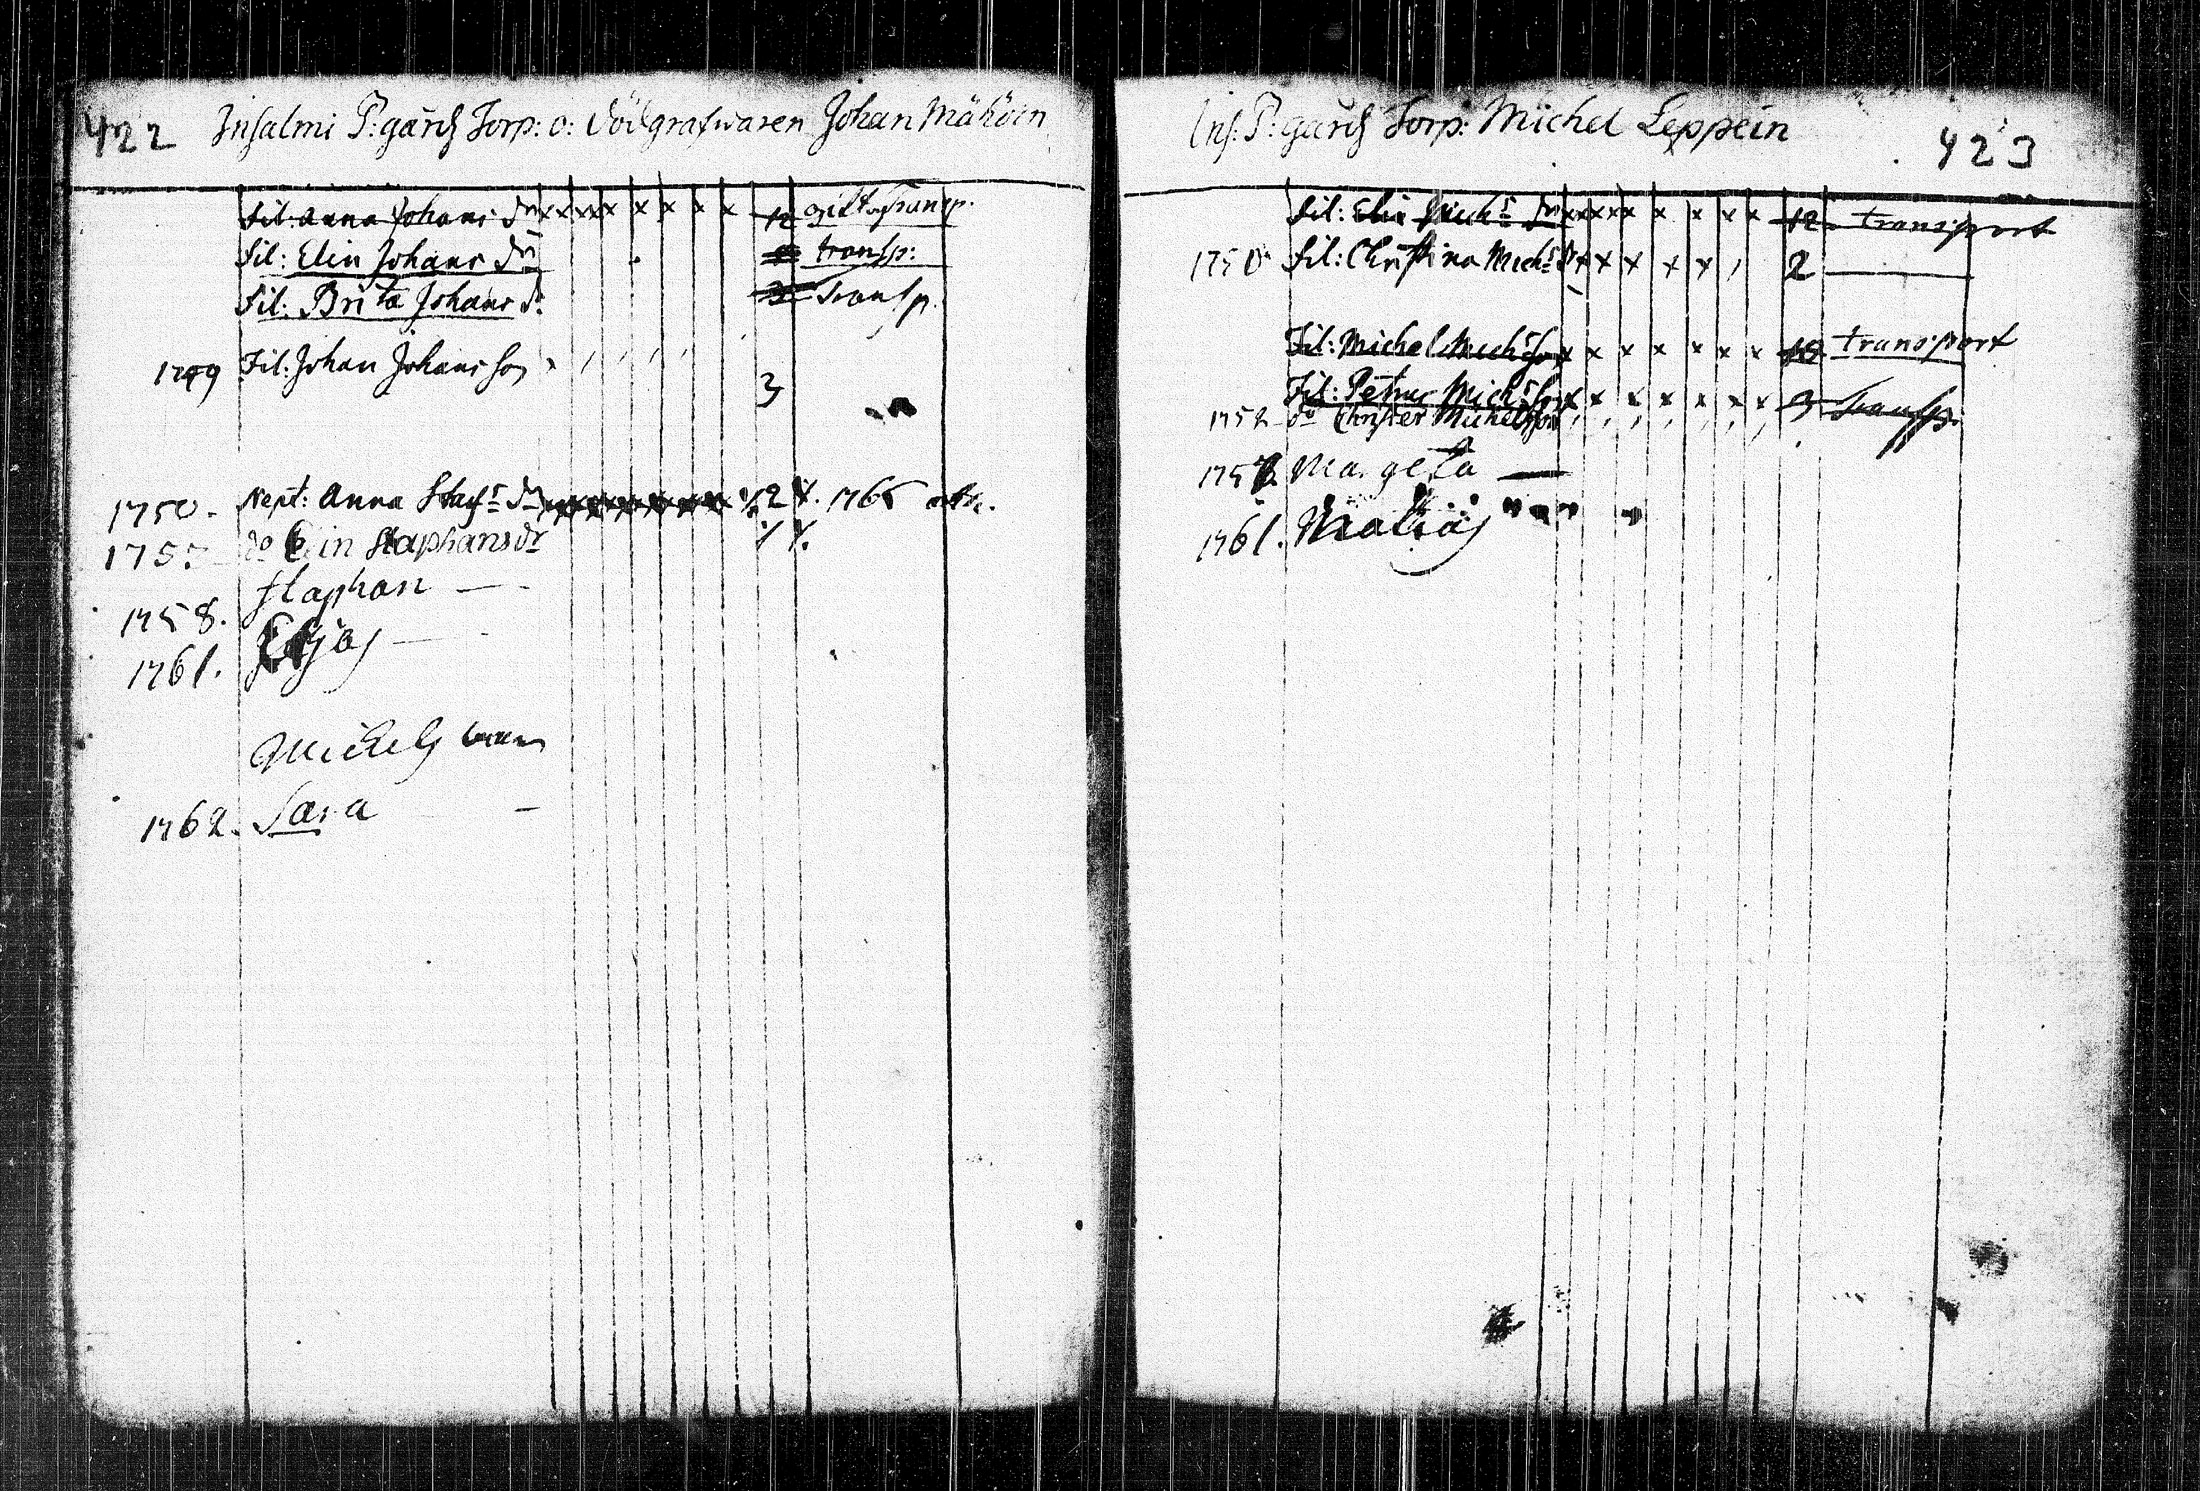 422 Insalmi P:gårds Torp: o: Dödgrafwaren Johan Mähöin
Fil: Anna Johans dr xxxxx x x x x 12 gift transp.
Fil: Elin Johans dr transp:
Fil: Brita Johans d. 3 Transp.
1749 Fil: Johan Johansson 3
1750. Nept: Anna Staf:s dr 2 1765
do Elin Staphansdr
1758. Staphan —
1761. Eljas —
Michels
1762. Sara —
Ins: P:gårds Torp: Michel Leppein 423
Fil: Elin Mich:s dr xxxxx x x x 12 transport
1750 Fil: Christina Mich:s dr x x x x x 2 —
Fil: Michel Michsson x x x x x x x transport
Fil: Petrus Michson x x x x x x x 3 Transp.
1752 do Christer Michelsson
Margeta —
1761. Matias " " "